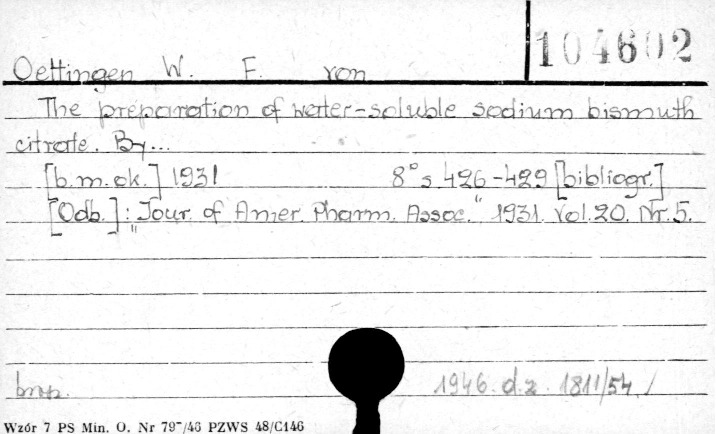 104602
Oettingen W. F. von
The preparation of water-soluble sodium bismuth
citrate. By...
[b.m.ok.] 1931 8° s 426-429 [bibliogr.]
[Odb.]: "Jour. of Amer. Pharm. Assoc." 1931. Vol.20. Nr.5.
brosz.
1946. d.z. 1811/54. /
Wzór 7 PS Min. O. Nr 79-/46 PZWS 48/C146